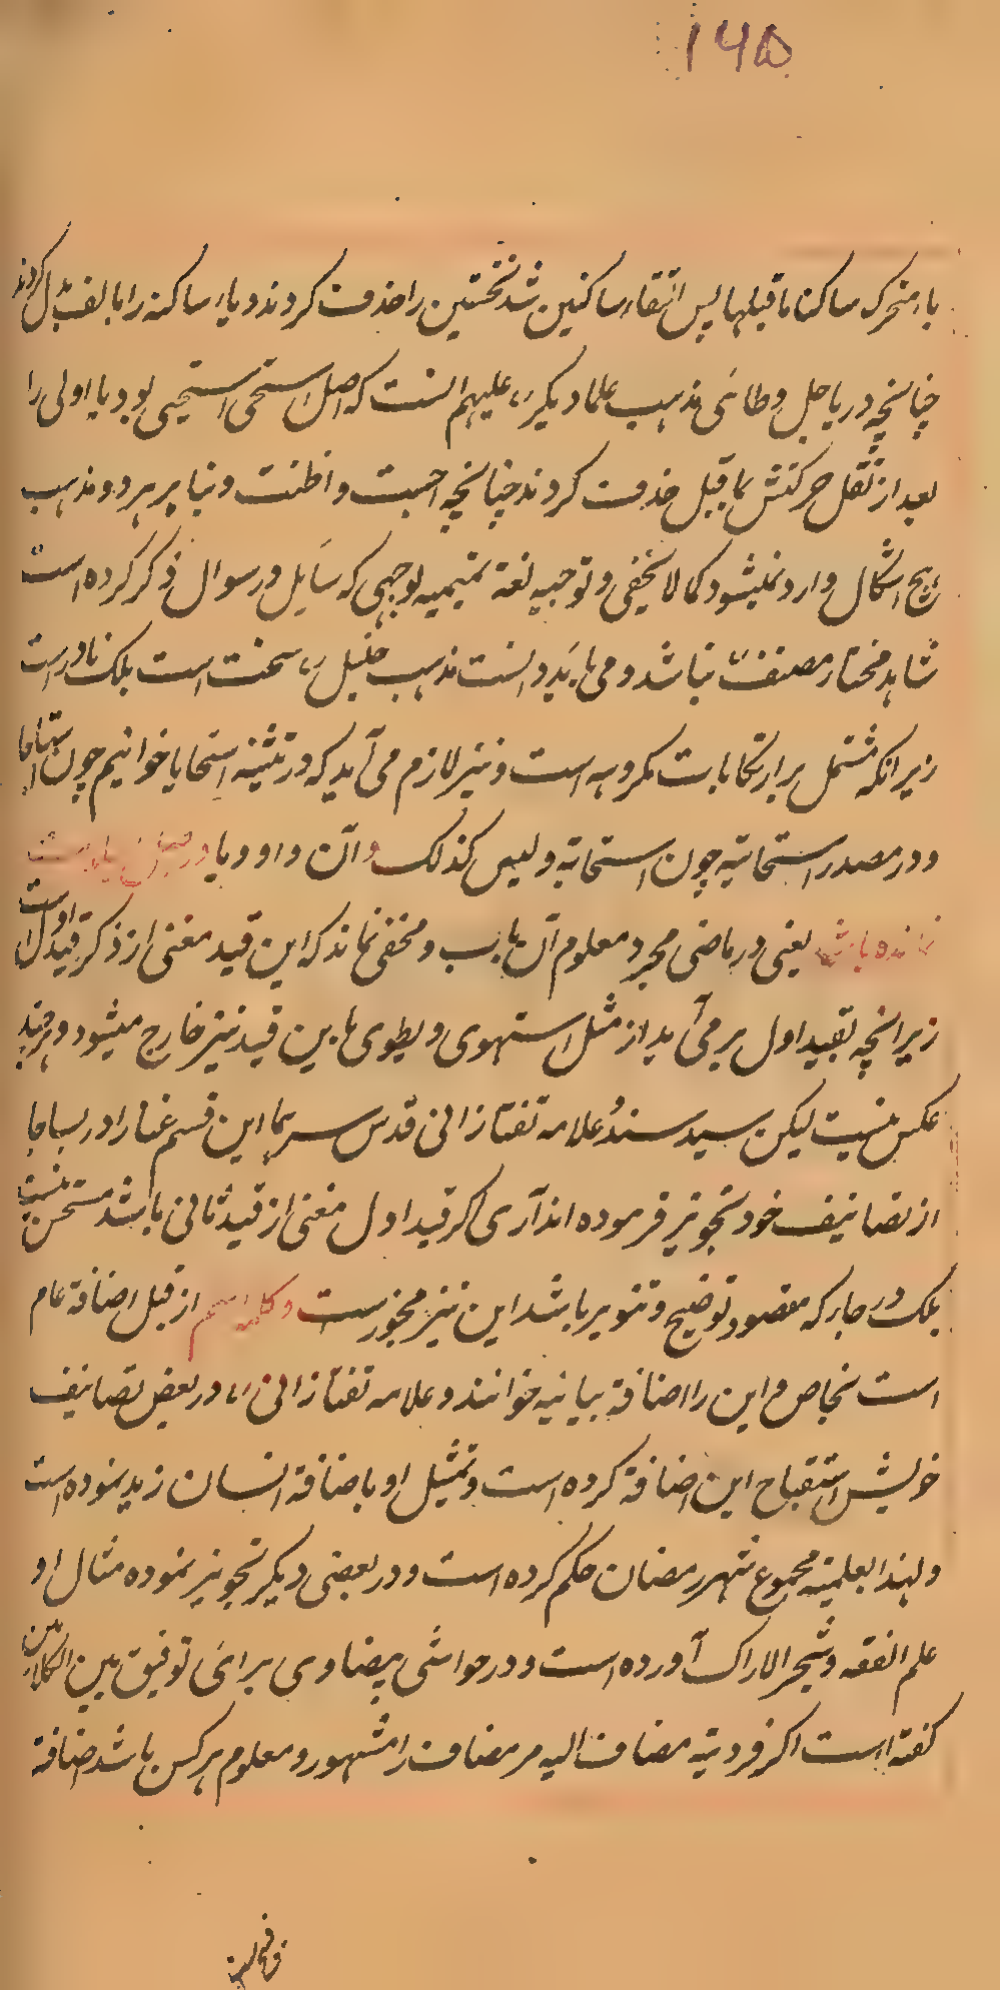 ۱۶۵
یاء متحرک ساکنا ماقبلها پس التقاء ساکنین شد نخستین را حذف کردند و یاء ساکنه را بالف بدل کردند
چنانچه در یاجل و طائی مذهب علماء دیگر علیهم انست که اصل استحی استحیی بود یا اولی را
بعد از نقل حرکتش بماقبل حذف کردند چنانچه احست و اظنت و بنا بر هر دو مذهب
هیچ اشکال وارد نمیشود کما لا یخفی و توجیه لغة تمیمیه بوجهی که سایل در سوال ذکر کرده است
شاید مختار مصنف نباشد و می باید دانست مذهب خلیل سخت است بلک نادرست
زیرانکه مشتمل بر ارتکابات مکروهه است و نیز لازم می آید که در تثنیه استحایا خوانیم چون
و در مصدر استحائیه چون استحابه و لیس کذلک و آن واو و یا در
نمانده باشد یعنی در ماضی مجرد معلوم آن باب و مخفی نماند که این قید مغنی از ذکر قید اول است
زیرانچه بقید اول بر می آید از مثل استهوی و یطوی باین قید نیز خارج میشود و هرچند
عکس نیست لیکن سید سند و علامه تفتازانی قدس سرهما این قسم غنا را در بسا جا
از تصانیف خود تجویز فرموده اند آری اگر قید اول مغنی از قید ثانی باشد مستحسن نیست
بلک در جاء که مقصود توضیح و تنویر باشد این نیز مجوز ست و کلمه اسم از قبل اضافة عام
است بخاص و این را اضافة بیانیه خوانند و علامه تفتازانی در بعض تصانیف
خویش استقباح این اضافة کرده است و تمثیل او باضافة انسان زید نموده است
و لهذا بعلمیة مجموع شهر رمضان حکم کرده است و در بعضی دیگر تجویز نموده مثال او
علم الفقه و شجر الاراک آورده است و در حواشی بیضاوی برای توفیق بین الکلامین
گفته است اگر فردیة مضاف الیه مر مضاف را مشهور و معلوم هر کس باشد اضافة